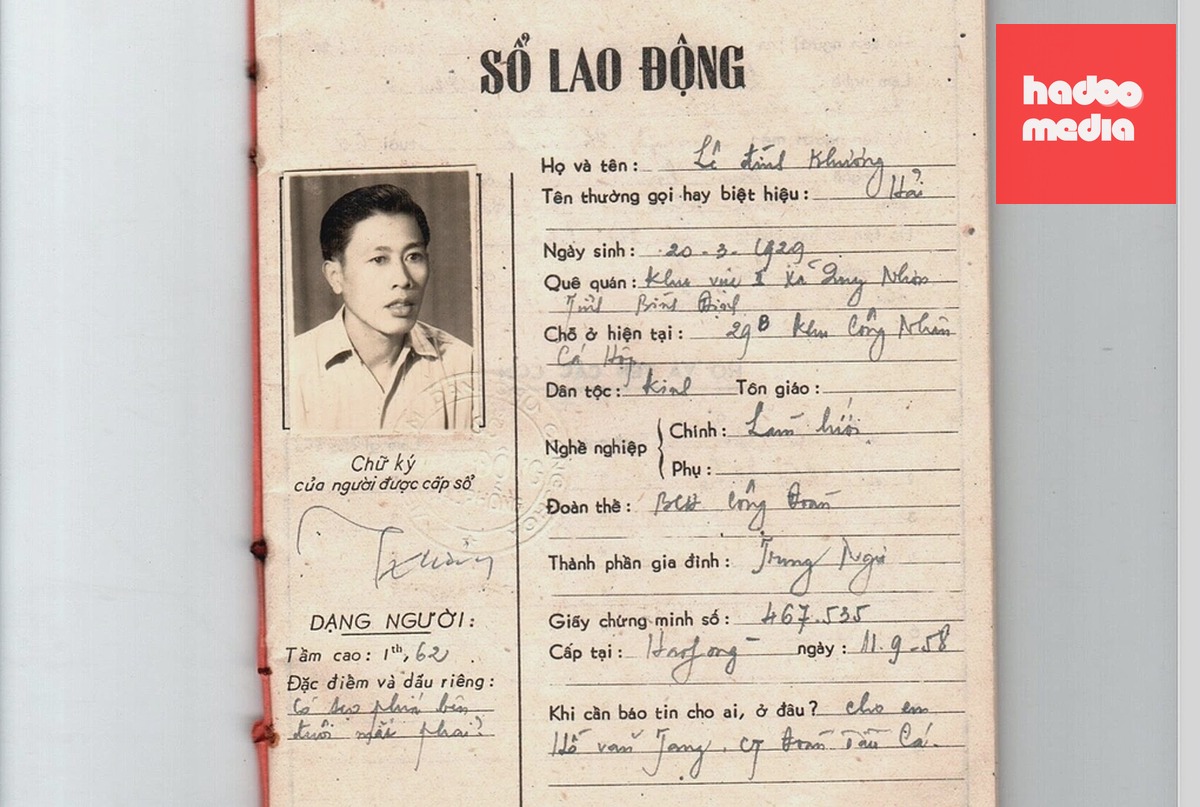 SỔ LAO ĐỘNG
hadoo
media
Họ và tên: Lê đình Khương
Tên thường gọi hay biệt hiệu: Hải
Ngày sinh: 20-3-1929
Quê quán: Khu vực II Xã Quy Nhơn
Tỉnh Bình Định
Chỗ ở hiện tại: 29B Khu Công Nhân
Cá Hộp
Dân tộc: Kinh Tôn giáo:
Nghề nghiệp
Chính: Làm lưới
Phụ:
Đoàn thể: BCH Công Đoàn
Thành phần gia đình: Trung
Giấy chứng minh số: 467.535
Cấp tại: ngày: 11.9.58
Khi cần báo tin cho ai, ở đâu? cho em
Hồ văn, CT Đoàn Tàu Cá.
Chữ ký
của người được cấp sổ
DẠNG NGƯỜI:
Tầm cao: 1th,62
Đặc điểm và dấu riêng:
Có sẹo phía bên
đuôi mắt phải